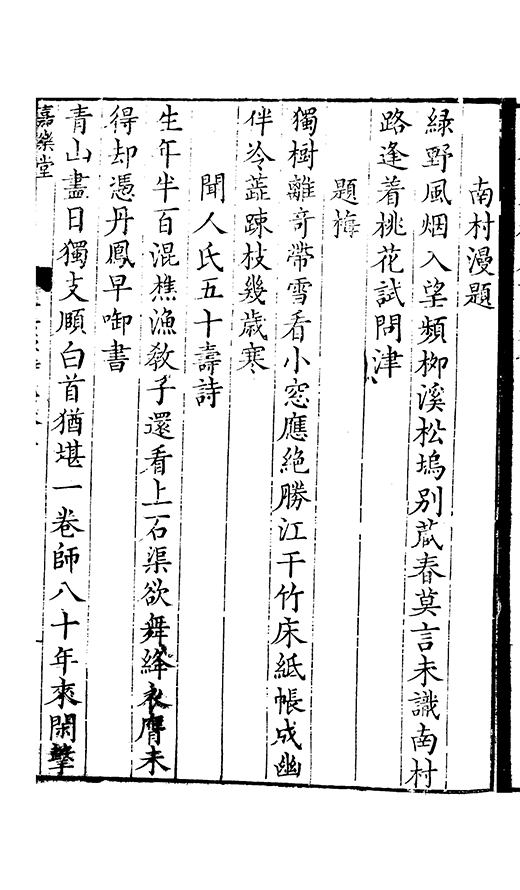 南村漫題
綠野風烟入望頻栁溪松塢別蔵春莫言未識南村
路逢着桃花試問津
題梅
獨樹離奇帶雪看小窓應絶勝江干竹床紙帳成幽
伴冷蘂踈枝幾歳寒
聞人氏五十壽詩
生年半百混樵漁教子還看上石渠欲舞絳衣膺未
得却憑丹鳳早啣書
青山盡日獨支頤白首猶堪一卷師八十年來閑擊
嘉樂堂